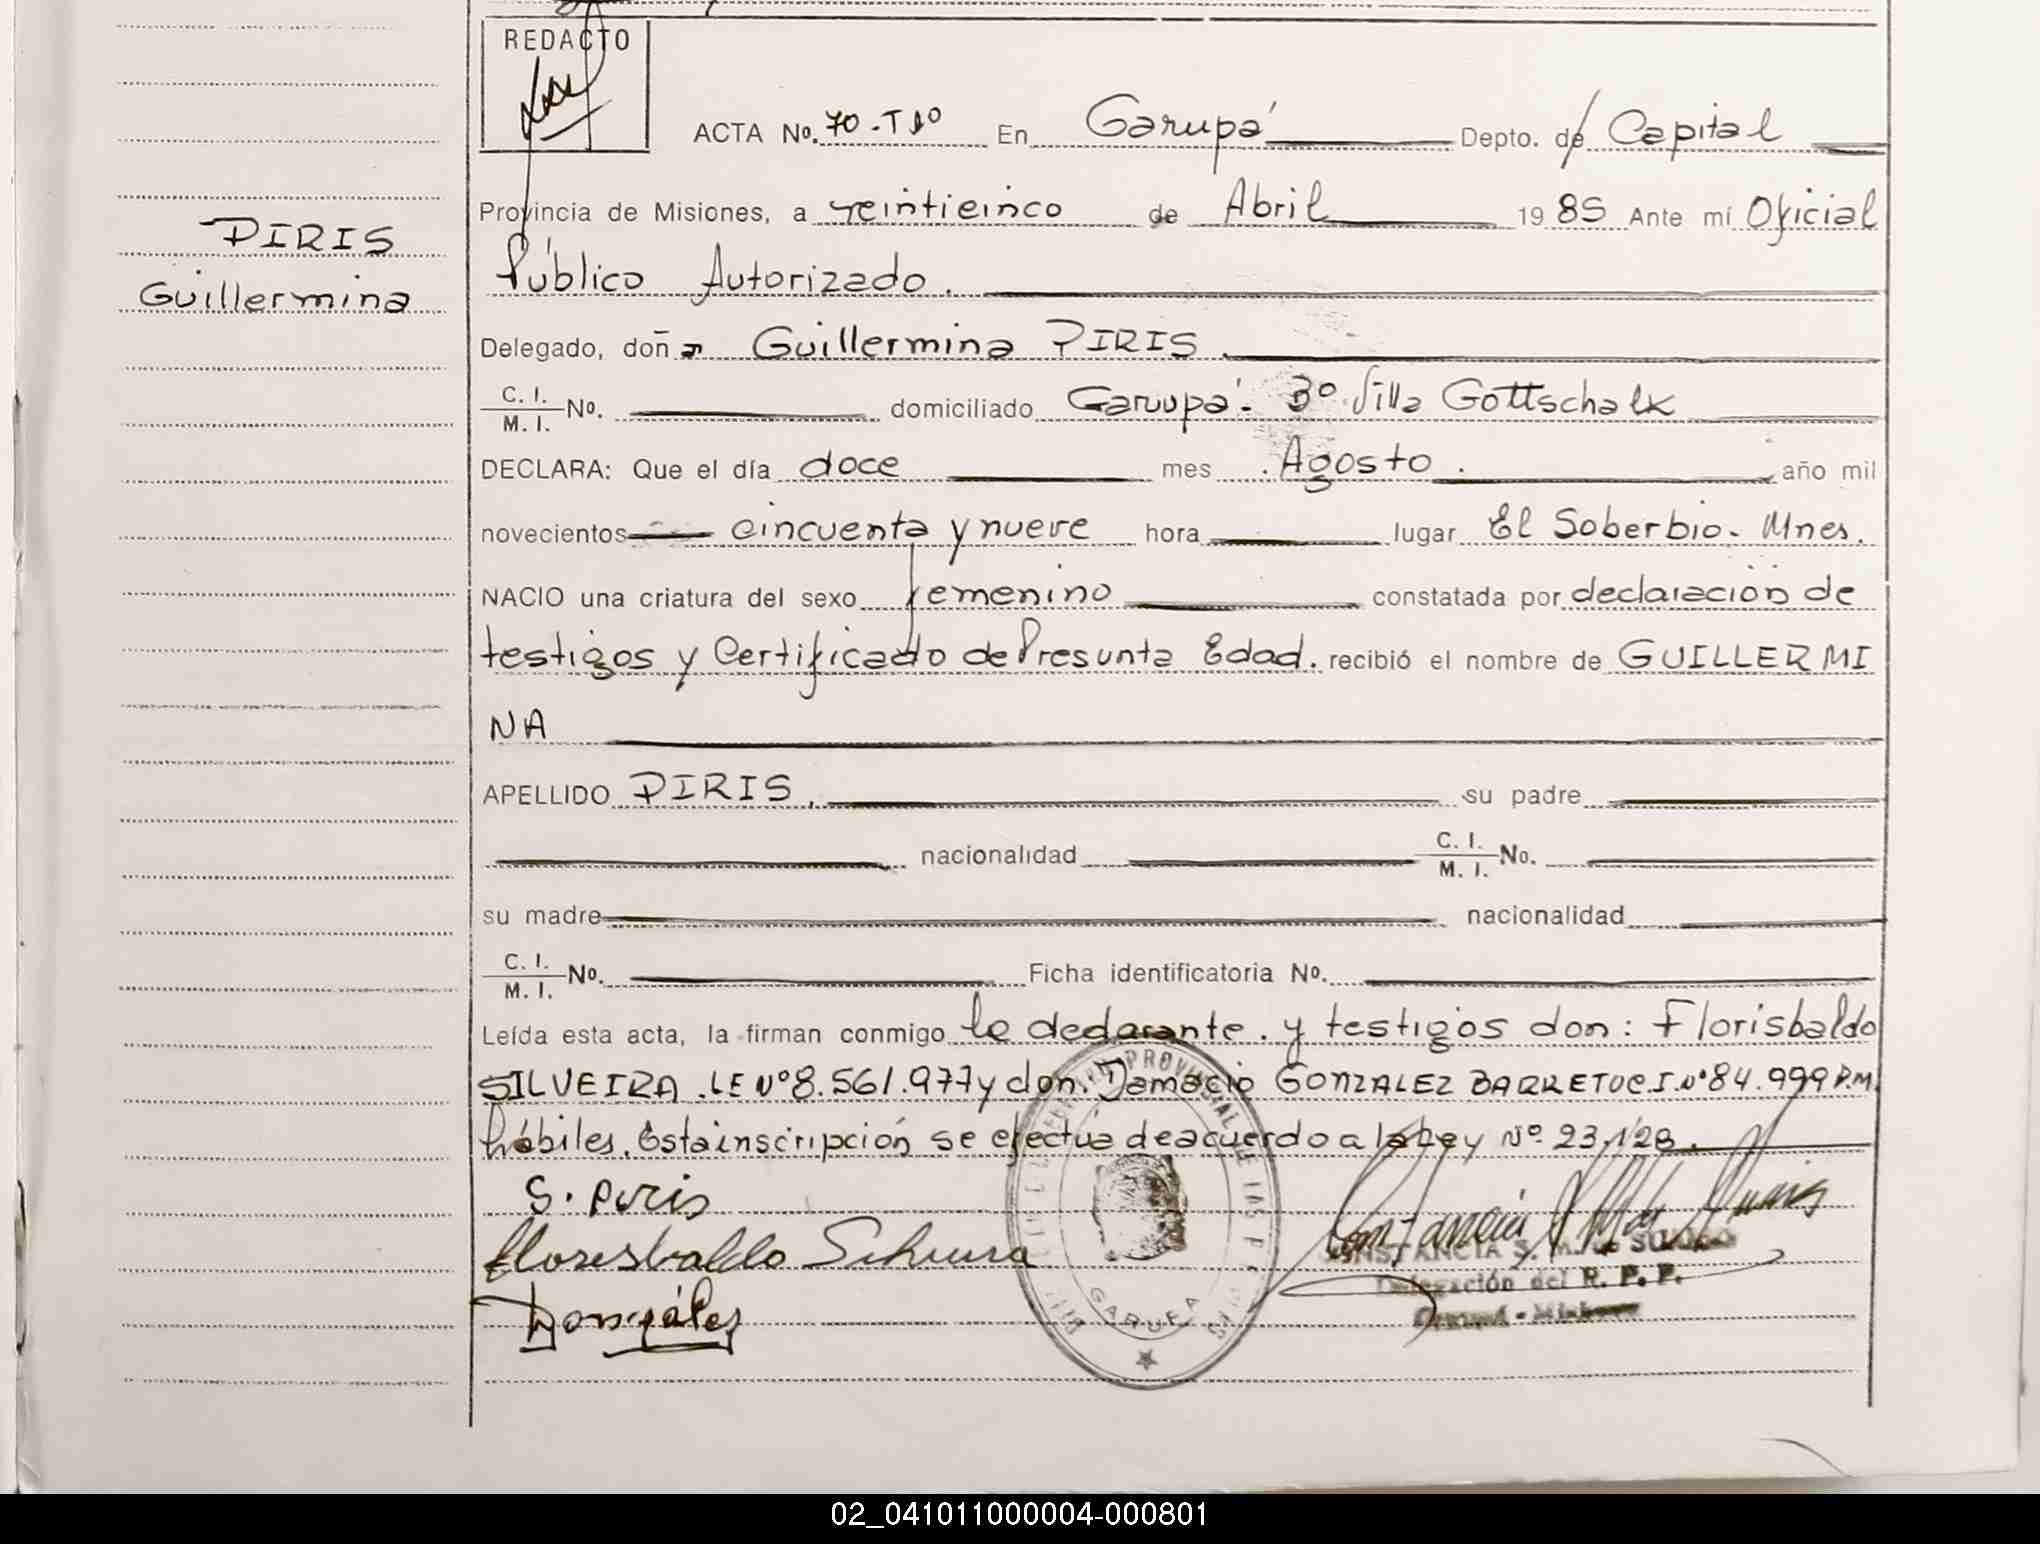 REDACTO
ACTA No. 70-T1º En Garupá Depto. de Capital
Provincia de Misiones, a veinticinco de Abril 1985 Ante mí Oficial
PIRIS
Público Autorizado.
Guillermina
Delegado, doña Guillermina PIRIS.
C. I.
M. I. No. domiciliado Garupá- Bº Villa Gottschalk
DECLARA: Que el día doce mes Agosto. año mil
novecientos cincuenta y nueve hora lugar El Soberbio- Mnes.
NACIO una criatura del sexo femenino constatada por declaración de
testigos y Certificado de Presunta Edad. recibió el nombre de GUILLERMI
NA
APELLIDO PIRIS. su padre
nacionalidad C. I.
M. I. No.
su madre nacionalidad
C. I.
M. I. No. Ficha identificatoria No.
Leída esta acta, la firman conmigo la declarante. y testigos don: Florisbaldo
SILVEIRA. LE Nº 8.561.977 y don: Damacio GONZALEZ BARRETO C.I. Nº 84.999 P.M.
hábiles. Esta inscripción se efectua de acuerdo a la Ley Nº 23.128.
G. Piris
Floresbaldo Silveira
González
CONSTANCIA S. M. de
Delegación del R. P. P.
Garupá - Misiones
PROVINCIAL DE LAS
GARUPA
02_041011000004-000801